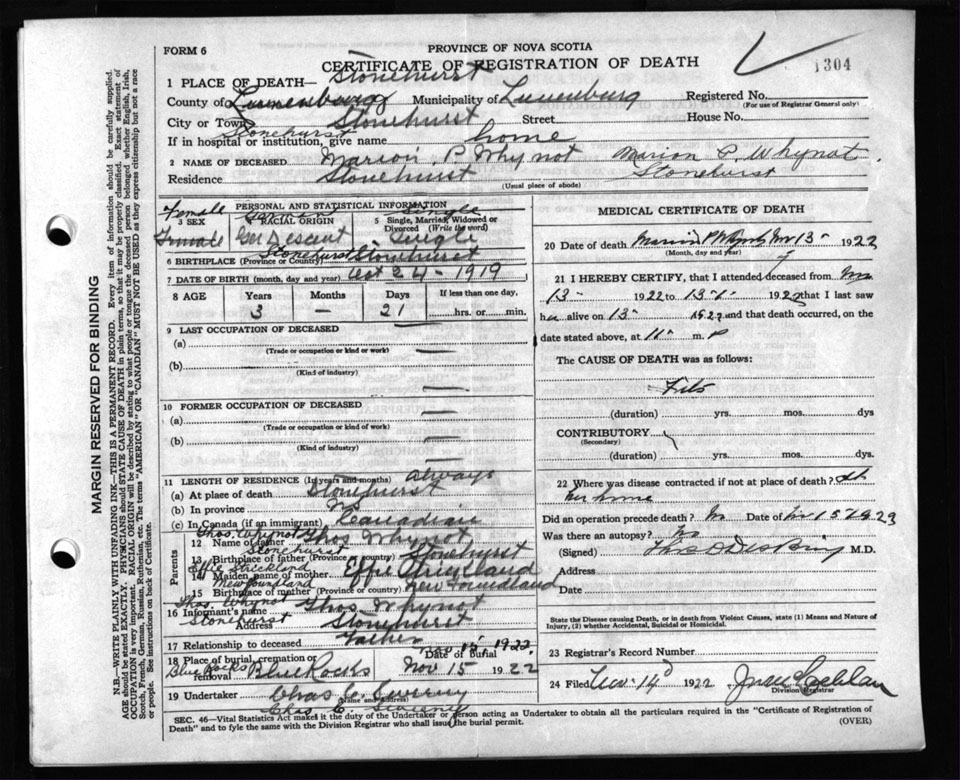 FORM 6
PROVINCE OF NOVA SCOTIA
CERTIFICATE OF REGISTRATION OF DEATH
1304
1 PLACE OF DEATH— Stonehurst
County of Lunenburg Municipality of Lunenburg Registered No.
(For use of Registrar General only)
City or Town Stonehurst Street House No.
Stonehurst
If in hospital or institution, give name home
2 NAME OF DECEASED Marion P. Whynot Marion P. Whynot
Residence Stonehurst Stonehurst
(Usual place of abode)
PERSONAL AND STATISTICAL INFORMATION
Female Single
3 SEX RACIAL ORIGIN 5 Single, Married, Widowed or Divorced (Write the word)
Female Ger Descent Single
6 BIRTHPLACE (Province or Country) Stonehurst Stonehurst
7 DATE OF BIRTH (month, day and year) Oct 24 - 1919
8 AGE Years Months Days If less than one day,
3 — 21 hrs. or min.
9 LAST OCCUPATION OF DECEASED
(a)
(Trade or occupation or kind or work)
(b)
(Kind of industry)
10 FORMER OCCUPATION OF DECEASED
(a)
(Trade or occupation or kind or work)
(b)
(Kind of industry)
11 LENGTH OF RESIDENCE (In years and months) Always
(a) At place of death Stonehurst
(b) In province
(c) In Canada (if an immigrant) Canadian
Parents
Thos. Whynot
12 Name of father Thos Whynot
Stonehurst
13 Birthplace of father (Province or country) Stonehurst
Effie Strickland
14 Maiden name of mother Effie Strickland
Newfoundland
15 Birthplace of mother (Province or country) New Foundland
Thos. Whynot
16 Informant's name Thos. Whynot
Stonehurst Address Stonehurst
17 Relationship to deceased Father
18 Place of burial, cremation or removal Date of burial 15 1922
Blue Rocks Blue Rocks Nov 15 1922
19 Undertaker Chas C. Sweeny
Name and address
Chas C. Sweeny
MEDICAL CERTIFICATE OF DEATH
20 Date of death Nov 13 1922
(Month, day and year)
21 I HEREBY CERTIFY, that I attended deceased from Nov
13 1922 to 13 1922 that I last saw
her alive on 13 1922 and that death occurred, on the
date stated above, at 11 m. P
The CAUSE OF DEATH was as follows:
Fits
(duration) yrs. mos. dys
CONTRIBUTORY
(Secondary)
(duration) yrs. mos. dys.
22 Where was disease contracted if not at place of death? At
her home
Did an operation precede death? No Date of
Was there an autopsy? No
(Signed) M.D.
Address
Date
State the Disease causing Death, or in death from Violent Causes, state (1) Means and Nature of Injury, (2) whether Accidental, Suicidal or Homicidal.
23 Registrar's Record Number
24 Filed Nov 14 1922
Division Registrar
SEC. 46—Vital Statistics Act makes it the duty of the Undertaker or person acting as Undertaker to obtain all the particulars required in the "Certificate of Registration of
Death" and to fyle the same with the Division Registrar who shall issue the burial permit. (OVER)
MARGIN RESERVED FOR BINDING
N.B.—WRITE PLAINLY WITH UNFADING INK—THIS IS A PERMANENT RECORD. Every item of information should be carefully supplied.
AGE should be stated EXACTLY. PHYSICIANS should STATE CAUSE OF DEATH in plain terms, so that it may be properly classified. Exact statement of
OCCUPATION is very important. RACIAL ORIGIN will be described by stating to what people or tongue the deceased person belonged whether English, Irish,
Scotch, French, German, Russian, Ruthenian, etc. The terms "AMERICAN" OR "CANADIAN" MUST NOT BE USED as they express citizenship but not a race
or people. See instructions on back of Certificate.